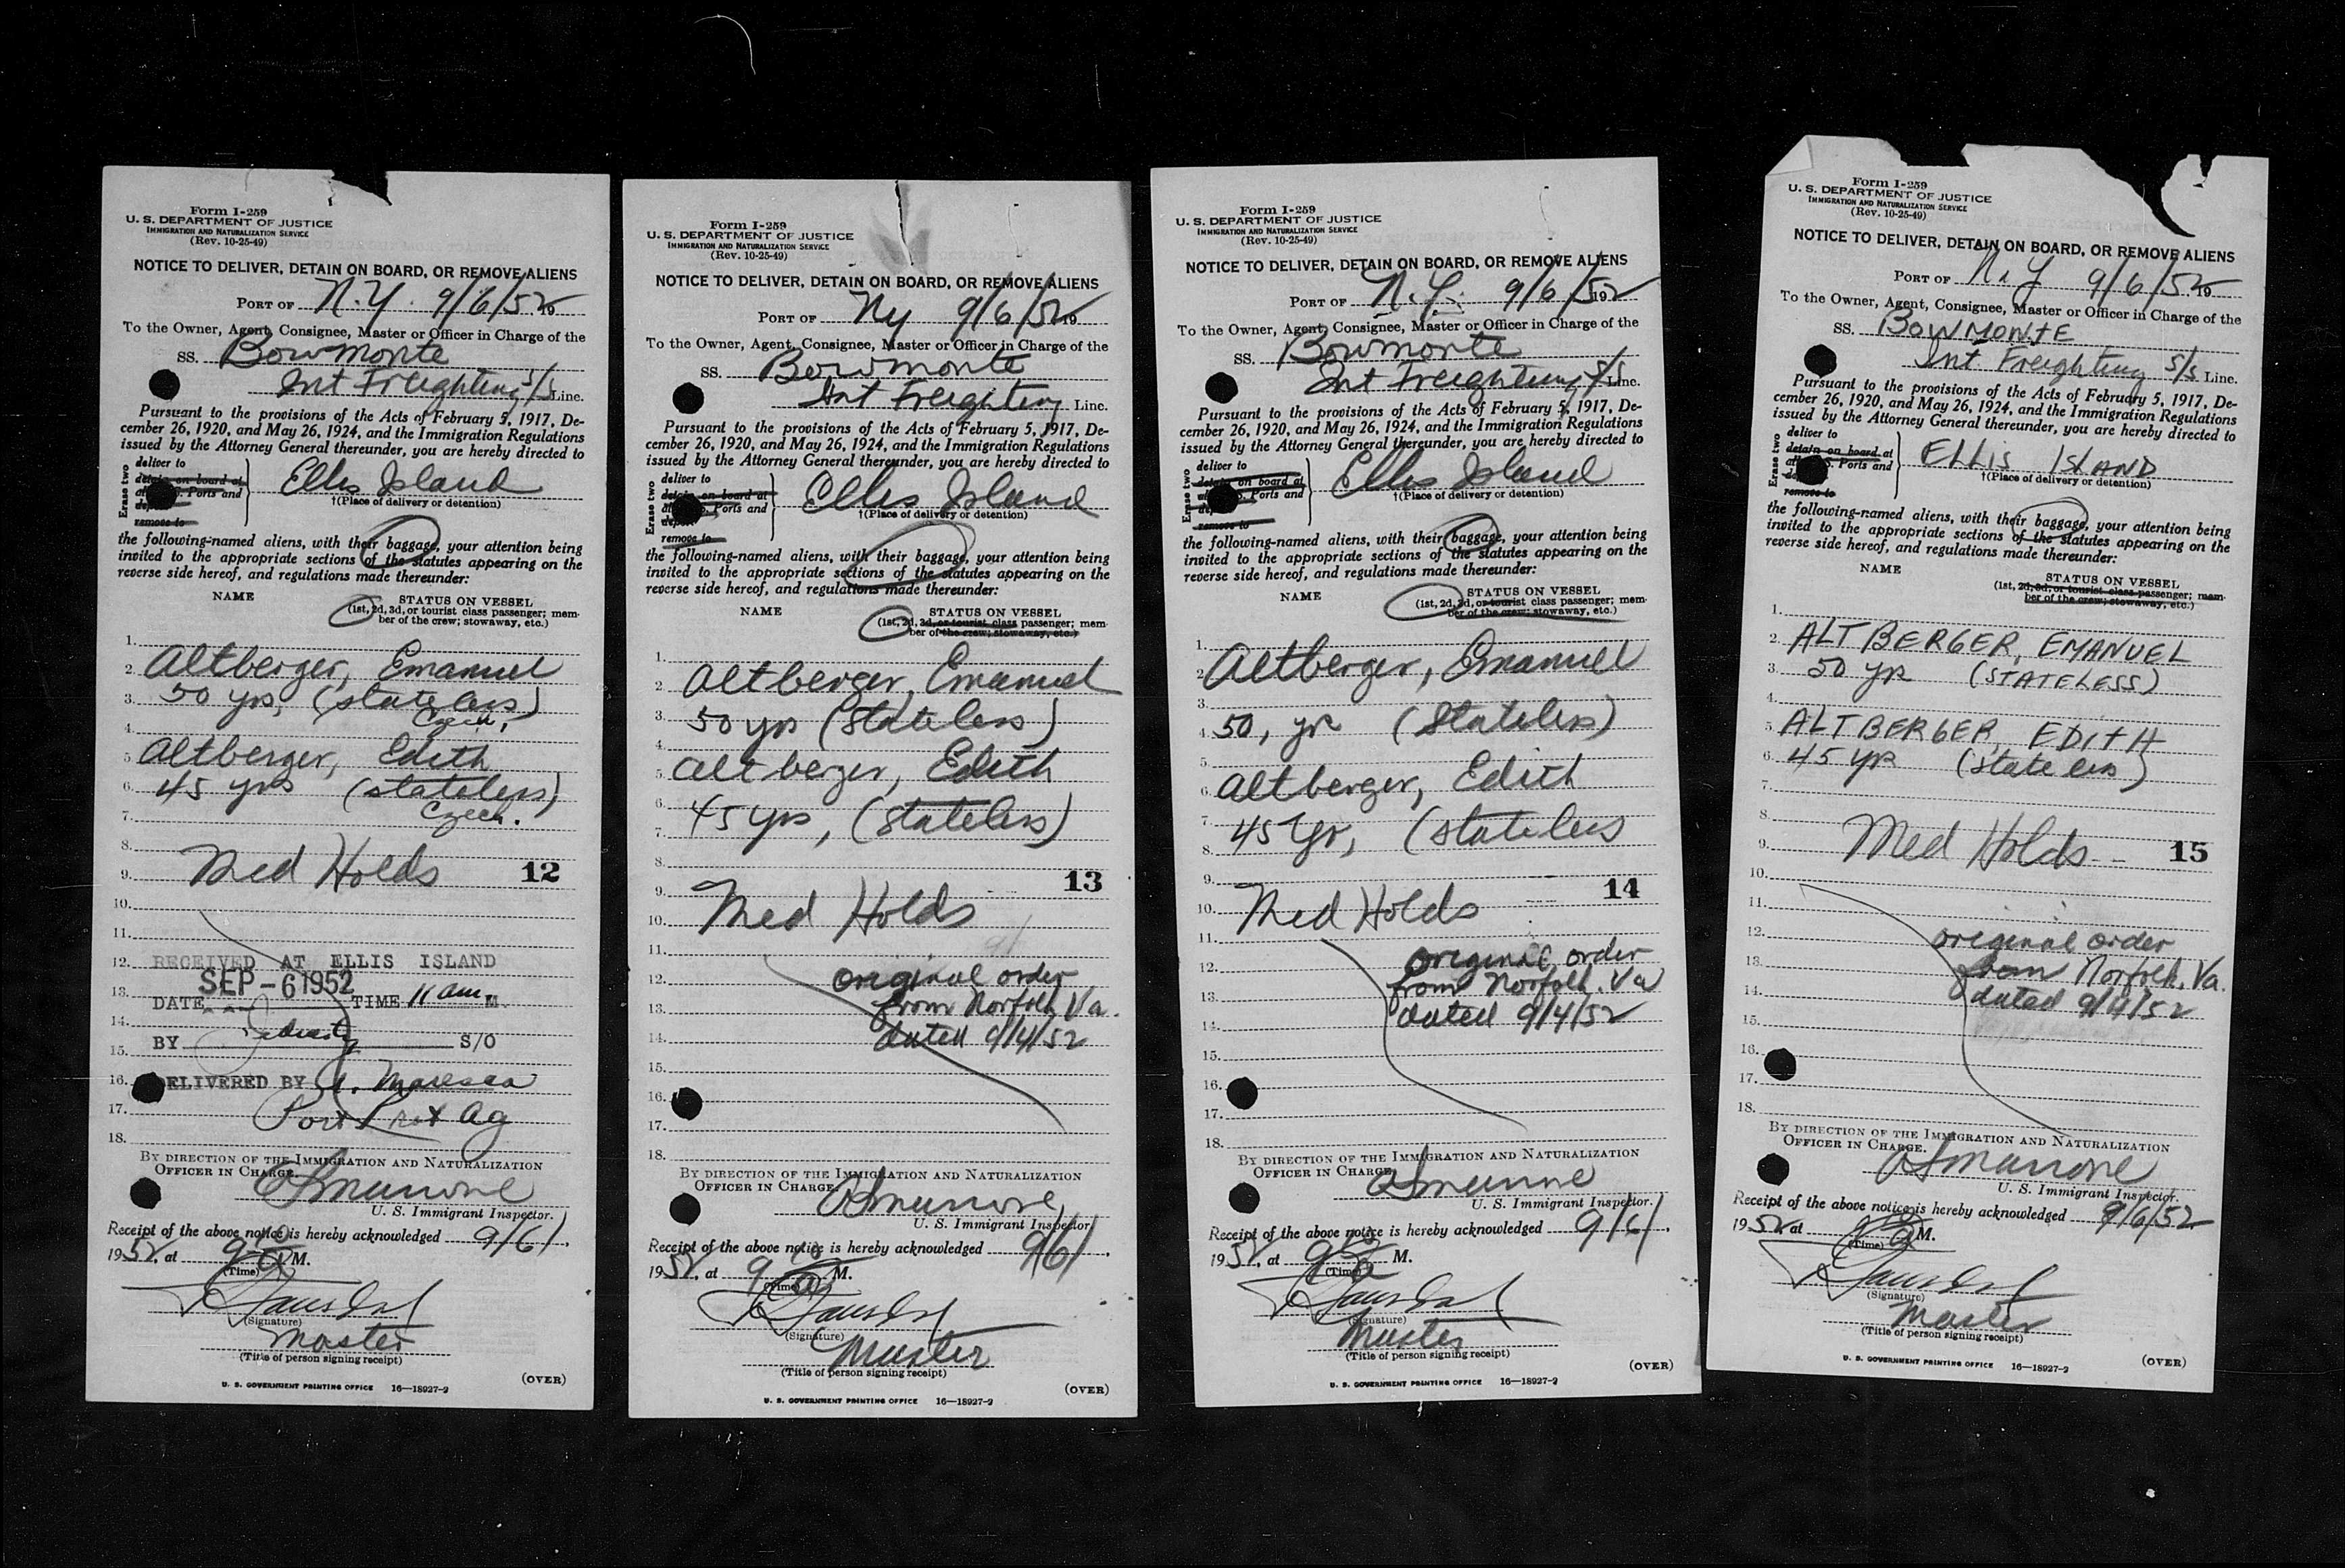 Form I-259
U. S. DEPARTMENT OF JUSTICE
IMMIGRATION AND NATURALIZATION SERVICE
(Rev. 10-25-49)
NOTICE TO DELIVER, DETAIN ON BOARD, OR REMOVE ALIENS
PORT OF N.Y. 9/6/52 19
To the Owner, Agent, Consignee, Master or Officer in Charge of the
SS. Bowmonte
Int Freighting S/S Line.
Pursuant to the provisions of the Acts of February 5, 1917, De-
cember 26, 1920, and May 26, 1924, and the Immigration Regulations
issued by the Attorney General thereunder, you are hereby directed to
Erase two
deliver to
detain on board at
Ports and
remove to
Ellis Island
†(Place of delivery or detention)
the following-named aliens, with their baggage, your attention being
invited to the appropriate sections of the statutes appearing on the
reverse side hereof, and regulations made thereunder:
NAME
STATUS ON VESSEL
(1st, 2d, 3d, or tourist class passenger; mem-
ber of the crew; stowaway, etc.)
1.
2. Altberger, Emanuel
3. 50 yrs, (stateless)
Czech,
4.
5. Altberger, Edith
6. 45 yrs (stateless)
7. Czech.
8.
9. Med Holds 12
10.
11.
12. RECEIVED AT ELLIS ISLAND
SEP - 6 1952
13. DATE TIME 11 am. M
14.
BY S/O
15.
16. DELIVERED BY Maresca
17. Port Ag
18.
BY DIRECTION OF THE IMMIGRATION AND NATURALIZATION
OFFICER IN CHARGE.
U. S. Immigrant Inspector.
Receipt of the above notice is hereby acknowledged 9/6/.
1952, at 9 a M.
(Time)
(Signature)
Master
(Title of person signing receipt)
(OVER)
U. S. GOVERNMENT PRINTING OFFICE 16—18927-2
Form I-259
U. S. DEPARTMENT OF JUSTICE
IMMIGRATION AND NATURALIZATION SERVICE
(Rev. 10-25-49)
NOTICE TO DELIVER, DETAIN ON BOARD, OR REMOVE ALIENS
PORT OF Ny 9/6/52 19
To the Owner, Agent, Consignee, Master or Officer in Charge of the
SS. Bowmonte
Int Freighting Line.
Pursuant to the provisions of the Acts of February 5, 1917, De-
cember 26, 1920, and May 26, 1924, and the Immigration Regulations
issued by the Attorney General thereunder, you are hereby directed to
Erase two
deliver to
detain on board at
Ports and
remove to
Ellis Island
†(Place of delivery or detention)
the following-named aliens, with their baggage, your attention being
invited to the appropriate sections of the statutes appearing on the
reverse side hereof, and regulations made thereunder:
NAME
STATUS ON VESSEL
(1st, 2d, 3d, or tourist class passenger; mem-
ber of the crew; stowaway, etc.)
1.
2. Altberger, Emanuel
3. 50 yrs (Stateless)
4.
5. Altberger, Edith
6.
7. 45 yrs, (Stateless)
8.
13
9.
10. Med Holds
11.
12. original order
13. from Norfolk Va.
14. dated 9/4/52
15.
16.
17.
18.
BY DIRECTION OF THE IMMIGRATION AND NATURALIZATION
OFFICER IN CHARGE
U. S. Immigrant Inspector
Receipt of the above notice is hereby acknowledged 9/6/.
1952, at 9 a M.
(Time)
(Signature)
Master
(Title of person signing receipt)
(OVER)
U. S. GOVERNMENT PRINTING OFFICE 16—18927-2
Form I-259
U. S. DEPARTMENT OF JUSTICE
IMMIGRATION AND NATURALIZATION SERVICE
(Rev. 10-25-49)
NOTICE TO DELIVER, DETAIN ON BOARD, OR REMOVE ALIENS
PORT OF N.Y. 9/6/52 19
To the Owner, Agent, Consignee, Master or Officer in Charge of the
SS. Bowmonte
Int Freighting S/S Line.
Pursuant to the provisions of the Acts of February 5, 1917, De-
cember 26, 1920, and May 26, 1924, and the Immigration Regulations
issued by the Attorney General thereunder, you are hereby directed to
Erase two
deliver to
detain on board at
Ports and
remove to
Ellis Island
†(Place of delivery or detention)
the following-named aliens, with their baggage, your attention being
invited to the appropriate sections of the statutes appearing on the
reverse side hereof, and regulations made thereunder:
NAME
STATUS ON VESSEL
(1st, 2d, 3d, or tourist class passenger; mem-
ber of the crew; stowaway, etc.)
1.
2. Altberger, Emanuel
3.
4. 50, yr (Stateless)
5.
6. Altberger, Edith
7.
8. 45 yr, (stateless
9.
14
10. Med Holds
11.
12. original order
13. from Norfolk. Va
14. dated 9/4/52
15.
16.
17.
18.
BY DIRECTION OF THE IMMIGRATION AND NATURALIZATION
OFFICER IN CHARGE
U. S. Immigrant Inspector.
Receipt of the above notice is hereby acknowledged 9/6/.
1952, at 9 a M.
(Time)
(Signature)
Master
(Title of person signing receipt)
(OVER)
U. S. GOVERNMENT PRINTING OFFICE 16—18927-2
Form I-259
U. S. DEPARTMENT OF JUSTICE
IMMIGRATION AND NATURALIZATION SERVICE
(Rev. 10-25-49)
NOTICE TO DELIVER, DETAIN ON BOARD, OR REMOVE ALIENS
PORT OF N.Y 9/6/52 19
To the Owner, Agent, Consignee, Master or Officer in Charge of the
SS. BOWMONTE
Int. Freighting S/S Line.
Pursuant to the provisions of the Acts of February 5, 1917, De-
cember 26, 1920, and May 26, 1924, and the Immigration Regulations
issued by the Attorney General thereunder, you are hereby directed to
Erase two
deliver to
detain on board at
S. Ports and
remove to
ELLIS ISLAND
†(Place of delivery or detention)
the following-named aliens, with their baggage, your attention being
invited to the appropriate sections of the statutes appearing on the
reverse side hereof, and regulations made thereunder:
NAME
STATUS ON VESSEL
(1st, 2d, 3d, or tourist class passenger; mem-
ber of the crew; stowaway, etc.)
1.
2. ALTBERGER, EMANUEL
3. 50 yr (STATELESS)
4.
5. ALTBERGER, EDITH
6. 45 yr (stateless)
7.
8.
9. Med Holds 15
10.
11.
12. original order
13. from Norfolk, Va.
14. dated 9/4/52
15.
16.
17.
18.
BY DIRECTION OF THE IMMIGRATION AND NATURALIZATION
OFFICER IN CHARGE.
U. S. Immigrant Inspector.
Receipt of the above notice is hereby acknowledged 9/6/52
1952 at 9 a M.
(Time)
(Signature)
Master
(Title of person signing receipt)
(OVER)
U. S. GOVERNMENT PRINTING OFFICE 16—18927-2